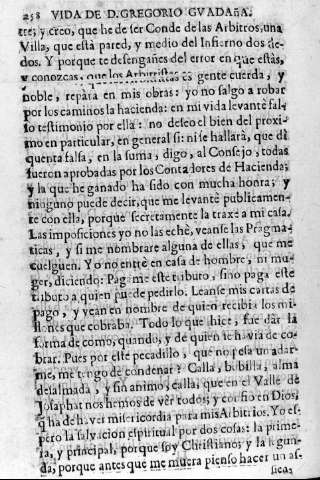 258 VIDA DE D. GREGORIO GVADAÑA.
tre; y creo, que he de ser Conde de las Arbitros, una
Villa, que està pared, y medio del Infierno dos de-
dos. Y porque te desengañes del error en que estàs,
y conozcas, que los Arbitristas es gente cuerda, y
noble, repàra en mis obras: yo no salgo à robar
por los caminos la hacienda: en mi vida levantè fal-
so testimonio por ella: no deseo el bien del proxi-
mo en particular, en general si: ni se hallarà, que dè
quenta falsa, en la suma, digo, al Consejo, todas
fueron aprobadas por los Contadores de Hacienda;
y la que he ganado ha sido con mucha honra; y
ninguno puede decir, que me levantè publicamen-
te con ella, porque secretamente la traxe à mi casa.
Las imposiciones yo no las echè, veanse las Pragma-
ticas, y si me nombrare alguna de ellas, que me
cuelguen. Yo no entrè en casa de hombre, ni mu-
ger, diciendo: Pagame este tributo, sino paga este
tributo à quien puede pedirlo. Leanse mis cartas de
pago, y vean en nombre de quien recibia los mi-
llones que cobraba. Todo lo que hice, fue dàr la
forma de como, quando, y de quien se havia de co-
brar. Pues por este pecadillo, que no pesa un adar-
me, me tengo de condenar? Calla, bobilla, alma
desalmada, y sin animo, calla; que en el Valle de
Josaphat nos hemos de vèr todos; y confio en Dios;
q̃ ha de haver misericordia para mis Arbitrios. Yo es-
pero la salvacion espiritual por dos cosas: la prime-
ra, y principal, porque soy Christiano; y la segun-
da, porque antes que me muera pienso hacer un as-
sien-